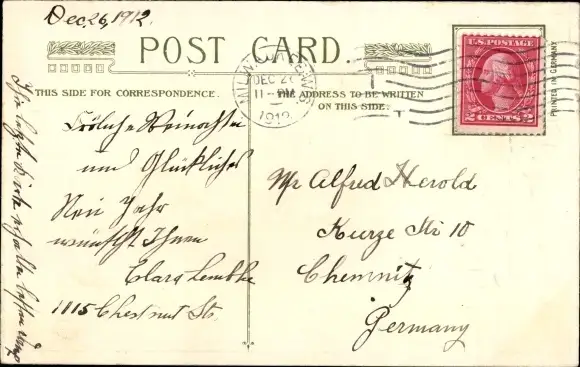 Dec 26, 1912.
POST CARD.
THIS SIDE FOR CORRESPONDENCE.
THE ADDRESS TO BE WRITTEN
ON THIS SIDE.
MILWAUKEE, WIS.
DEC 27
11-PM
1912
U.S. POSTAGE
2 CENTS 2
PRINTED IN GERMANY
Fröhliche Weinachten
und Glückliches
Neu Jahr
wünscht Ihnen
Clara Lembke
1115 Chestnut St.
Mr Alfred Herold
Kurze Str 10
Chemnitz
Germany
Ihre letzte Karte erhalten besten